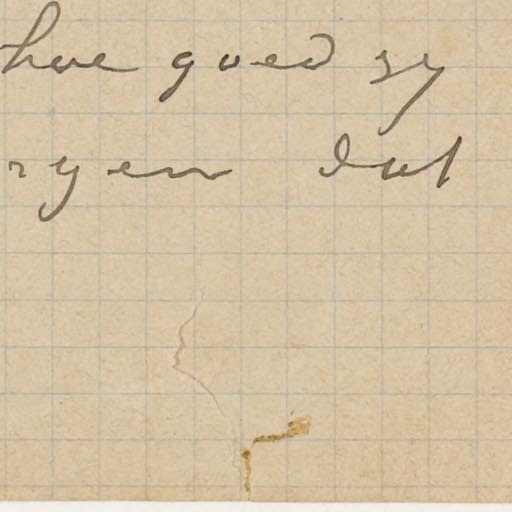 hoe goed zy
zyen dat